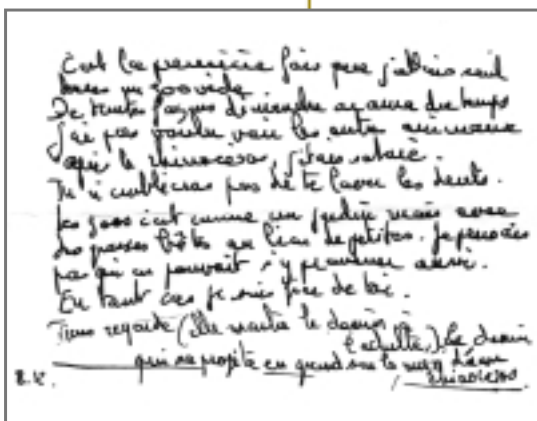 C'est la première fois que j'allais seul
dans un zoo vide
De toutes façons dimanche on aura du temps
j'ai pas voulu voir les autres animaux
après le rhinocéros, j'étais
Tu n'oublieras pas de te laver les dents.
les zoos c'est comme un jardin mais avec
des grosses bêtes au lieu de petites. Je pensais
pas qu'on pouvait s'y promener aussi.
En tout cas je suis fier de toi.
Tiens regarde (elle montre le dessin
le dessin
qui se projette en grand sur le
rhinocéros